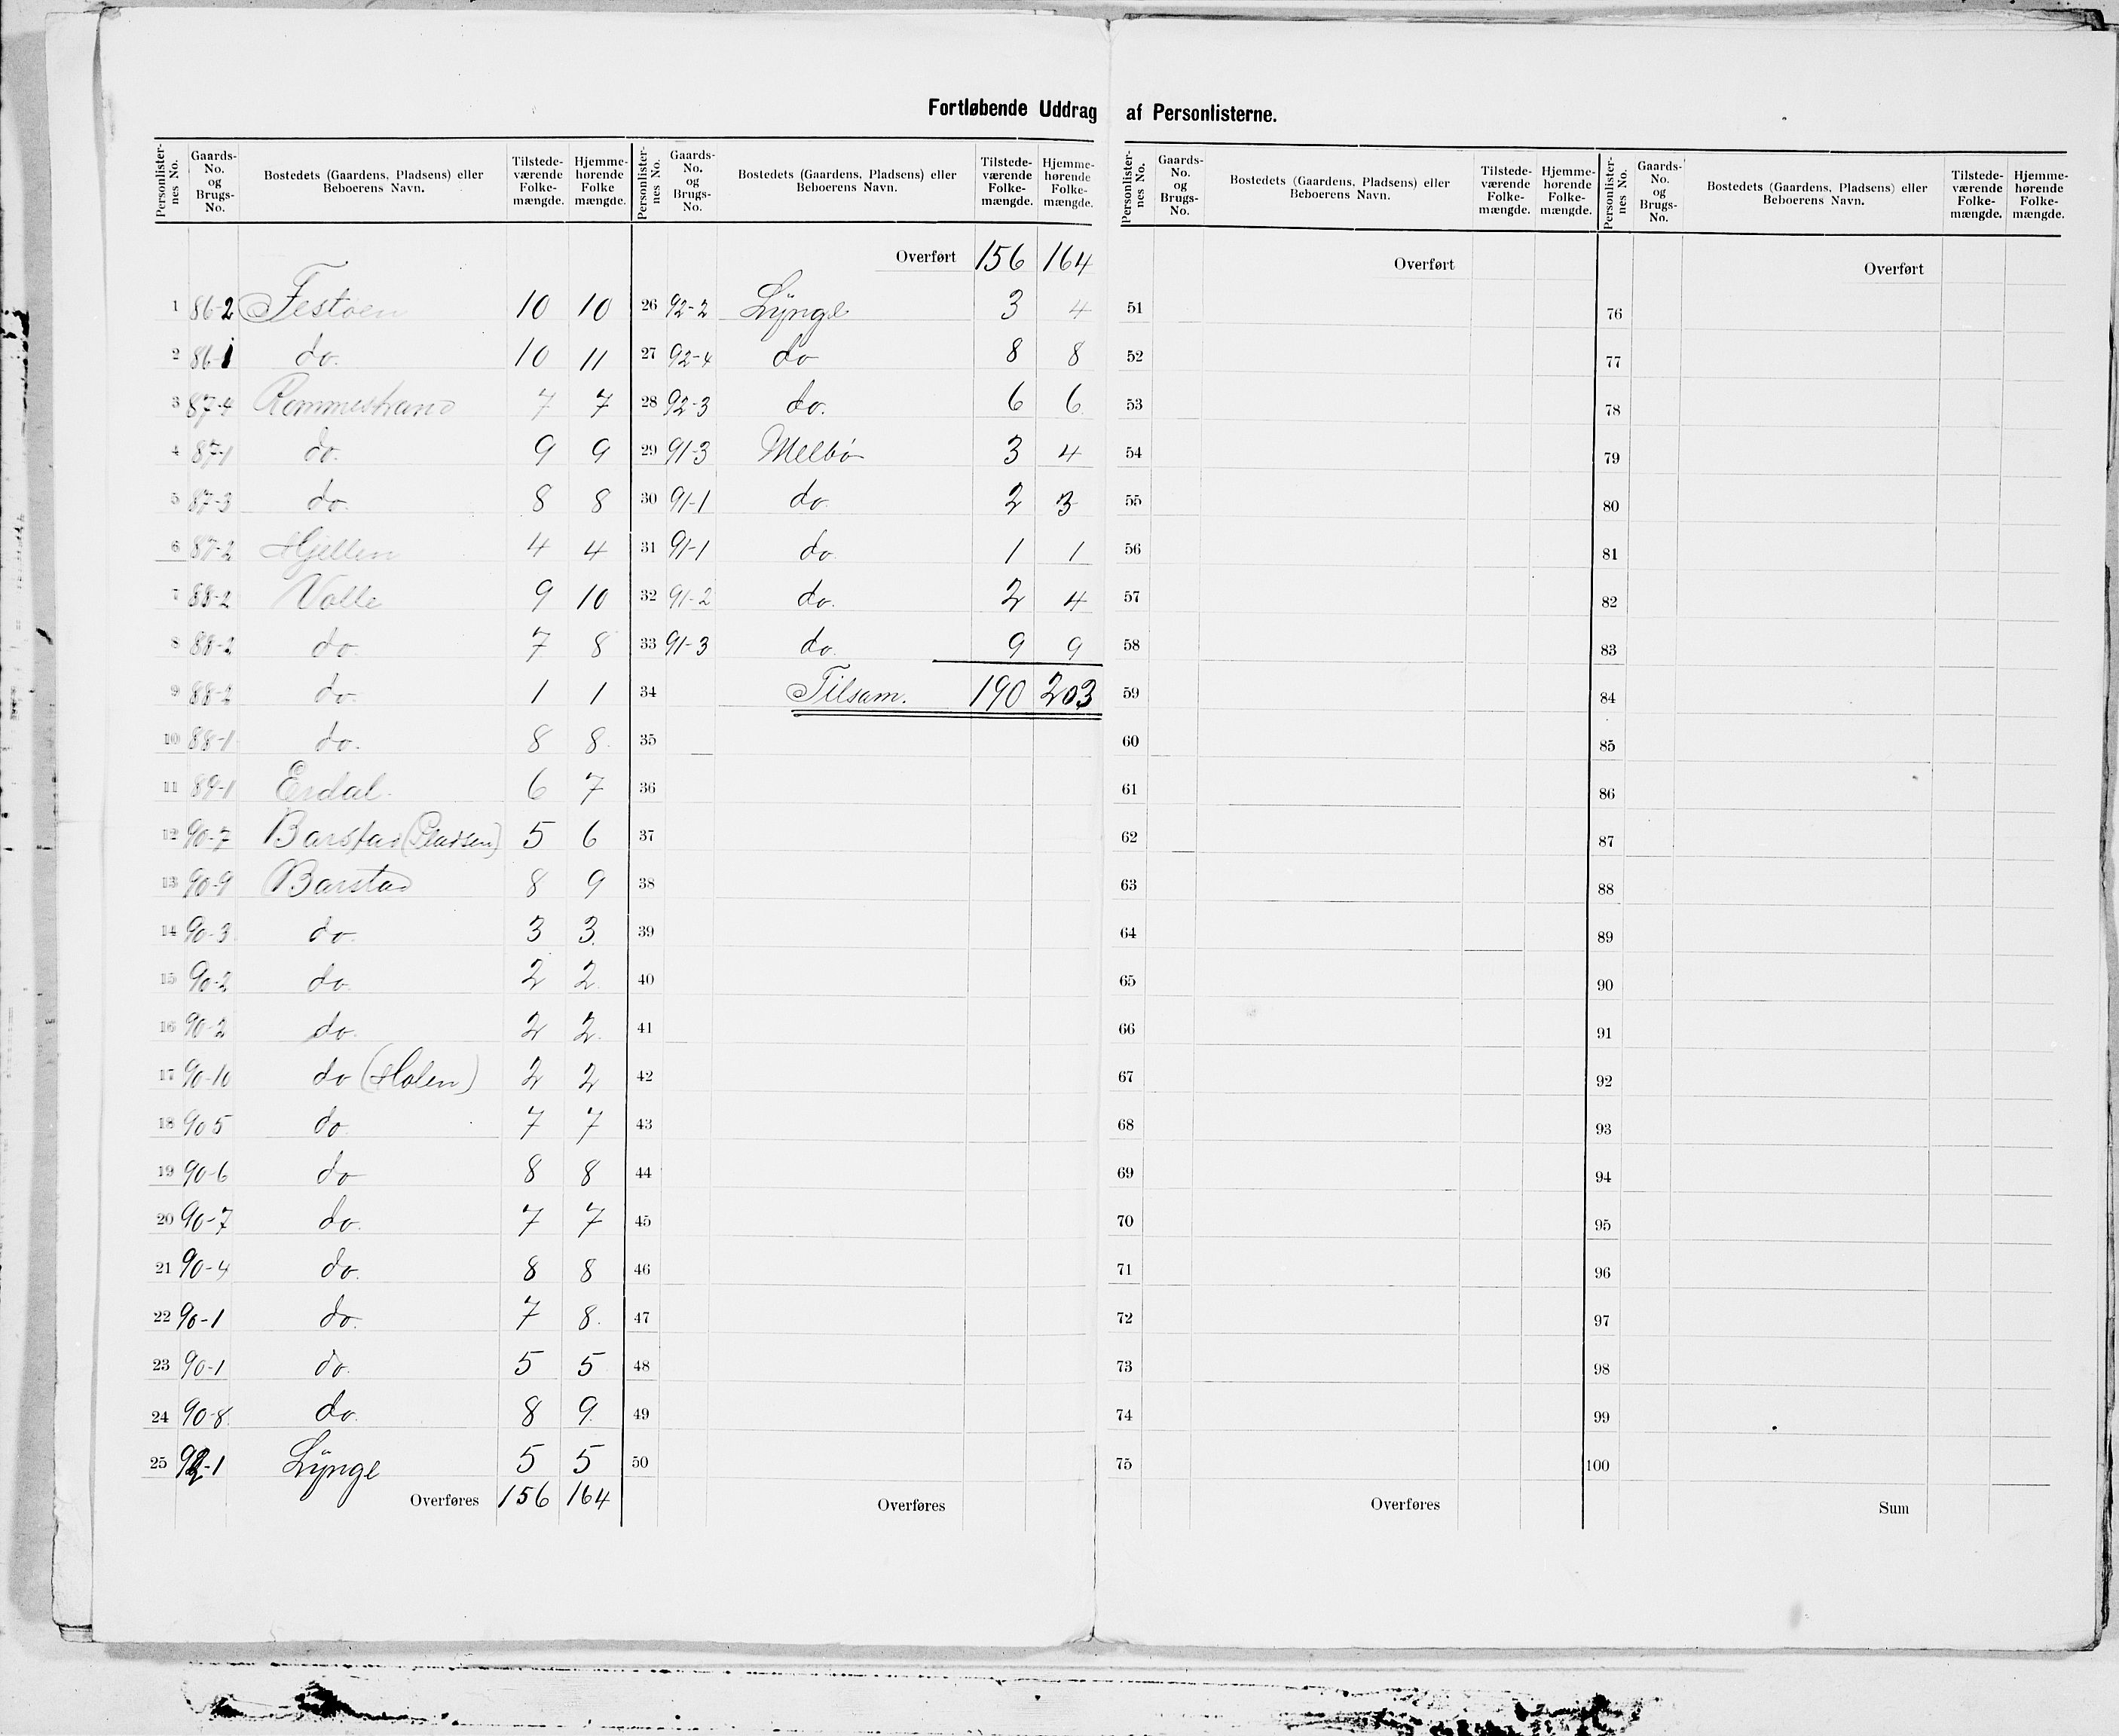 Fortløbende Uddrag af Personlisterne.
Personlister-nes No. Gaards-No. og Brugs-No. Bostedets (Gaardens, Pladsens) eller Beboerens Navn. Tilstede-værende Folke-mængde. Hjemme-hørende Folke mængde.
1 86-2 Festøen 10 10
2 86-1 do. 10 11
3 87-4 Rommestrand 7 7
4 87-1 do. 9 9
5 87-3 do. 8 8
6 87-2 Hjellen 4 4
7 88-2 Valle 9 10
8 88-2 do. 7 8
9 88-2 do. 1 1
10 88-1 do. 8 8.
11 89-1 Erdal. 6 7
12 90-7 Barstad (Pladsen) 5 6
13 90-9 Barstad 8 9
14 90-3 do. 3 3.
15 90-2 do. 2 2.
16 90-2 do. 2 2.
17 90-10 do (Holen) 2 2
18 90 5 do 7 7
19 90-6 do 8 8
20 90-7 do. 7 7
21 90-4 do. 8 8
22 90-1 do. 7 8.
23 90-1 do. 5 5
24 90-8. do. 8 9.
25 92-1 Lÿnge 5 5
Overføres 156 164
Personlister-nes No. Gaards-No. og Brugs-No. Bostedets (Gaardens, Pladsens) eller Beboerens Navn. Tilstede-værende Folke-mængde. Hjemme-hørende Folke-mængde.
Overført 156 164
26 92-2 Lÿnge 3 4
27 92-4 do 8 8
28 92-3 do. 6 6.
29 91-3 Melbø 3 4
30 91-1 do. 2 3
31 91-1 do. 1 1
32 91-2 do. 2 4
33 91-3 do. 9 9
34 Tilsam. 190 203
35
36
37
38
39
40
41
42
43
44
45
46
47
48
49
50
Overføres
Personlister-nes No. Gaards-No. og Brugs-No. Bostedets (Gaardens, Pladsens) eller Beboerens Navn. Tilstede-værende Folke-mængde. Hjemme-hørende Folke-mængde.
Overført
51
52
53
54
55
56
57
58
59
60
61
62
63
64
65
66
67
68
69
70
71
72
73
74
75
Overføres
Personlister-nes No. Gaards-No. og Brugs-No. Bostedets (Gaardens, Pladsens) eller Beboerens Navn. Tilstede-værende Folke-mængde. Hjemme-hørende Folke-mængde.
Overført
76
77
78
79
80
81
82
83
84
85
86
87
88
89
90
91
92
93
94
95
96
97
98
99
100
Sum